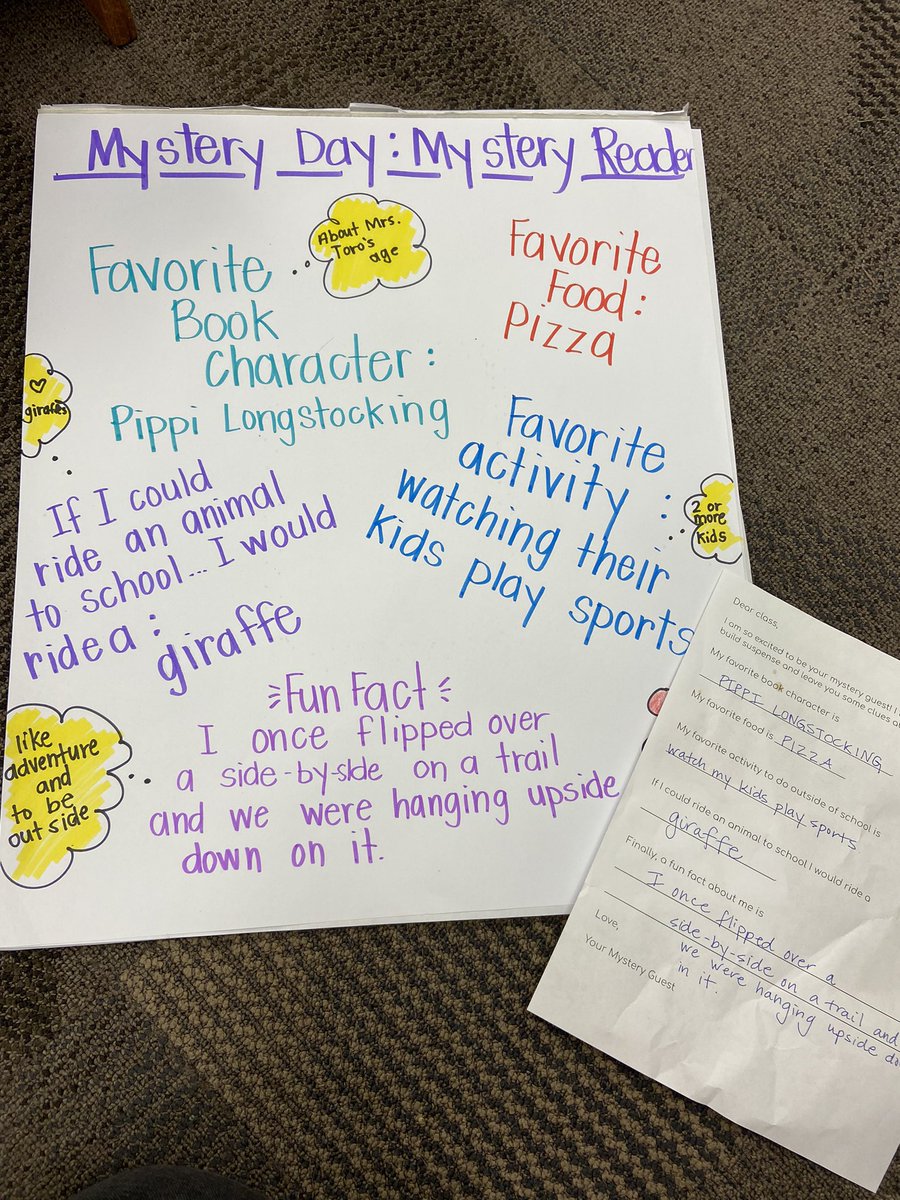 Mystery Day: Mystery Reader
About Mrs.
Toro's
age
Favorite
Book
Character:
Pippi Longstocking
Favorite
Food:
Pizza
♡
giraffes
Favorite
activity:
watching their
kids play sports
2 or
more
kids
If I could
ride an animal
to school... I would
ride a:
giraffe
Fun Fact
I once flipped over
a side-by-side on a trail
and we were hanging upside
down on it.
like
adventure
and
to be
outside
Dear class,
I am so excited to be your mystery guest! I
build suspense and leave you some clues
My favorite book character is
PIPPI LONGSTOCKING
My favorite food is PIZZA
My favorite activity to do outside of school is
watch my kids play sports.
If I could ride an animal to school I would ride a
giraffe
Finally, a fun fact about me is
I once flipped over a
side-by-side on a trail and
we were hanging upside
in it.
Love,
Your Mystery Guest